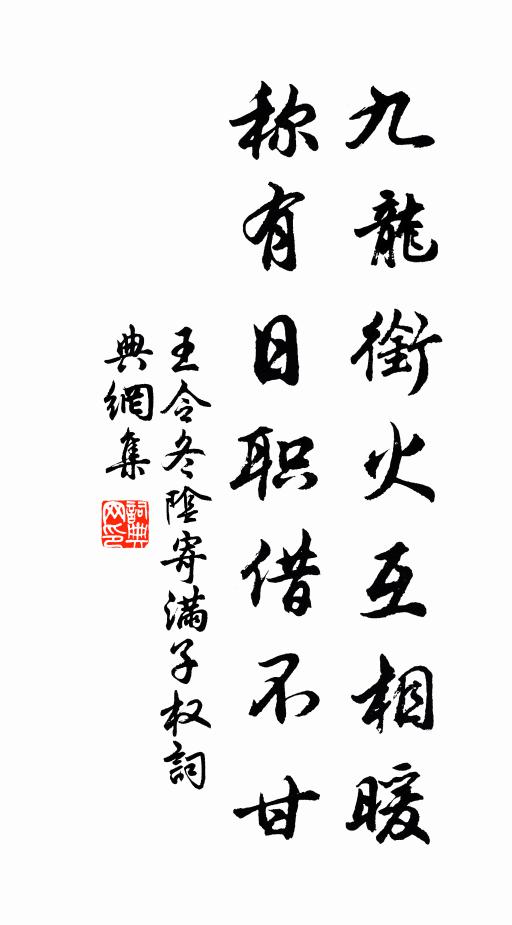 九龍銜火互相暖
称有日职借不甘
王令冬陰寄滿子权詞
典網集
詞典网印